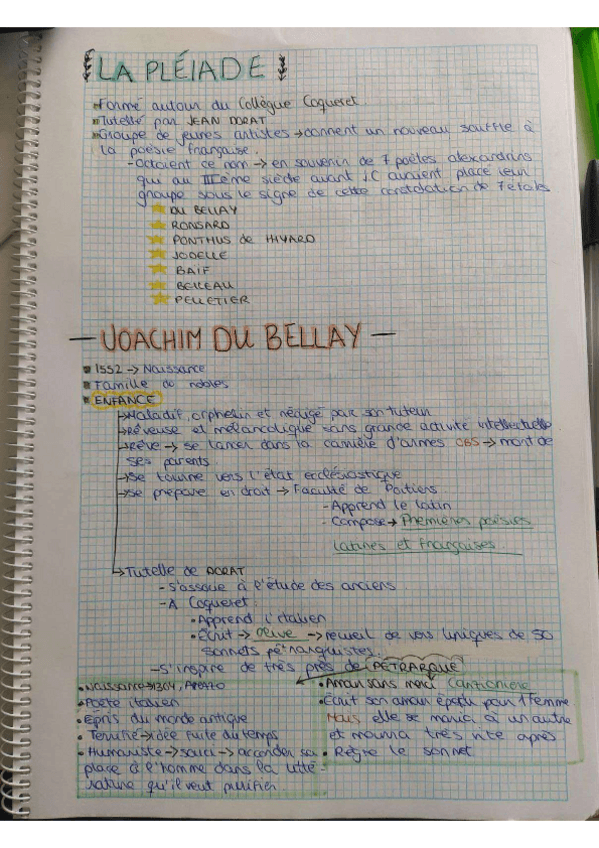 LA PLÉIADE
Formé autour du Collègue Coqueret
Tutellé par JEAN DORAT
Groupe de jeunes artistes → donnent un nouveau souffle à
la poésie française.
- Octroient ce nom → en souvenir de 7 poètes alexandrins
qui au IIIème siècle avant J.C avaient placé leur
groupe sous le signe de cette constelation de 7 étoiles
DU BELLAY
RONSARD
PONTHUS de THYARD
JODELLE
BAIF
BELLEAU
PELLETIER
— JOACHIM DU BELLAY —
1552 → Naissance
Famille de nobles
ENFANCE
→ Maladif, orphelin et négligé par son tuteur
→ Rêveuse et mélancolique sans grande activité intellectuelle
→ Rêve → se lancer dans la carrière d'armes OBS → mort de
ses parents
→ Se tourne vers l'état ecclésiastique
→ Se prépare en droit → Faculté de Poitiers
- Apprend le latin
- Compose → Premières poésies
latines et françaises
→ Tutelle de DORAT
- S'associe à l'étude des anciens
- A Coqueret:
• Apprend l'italien
• Écrit → Olive → recueil de vers uniques de 50
sonnets pétrarquistes
- S'inspire de très près de PÉTRARQUE
• Naissance → 1304, Arezzo
• Poète italien
• Épris du monde antique
• Terrifié → idée fuite du temps
• Humaniste → souci → accorder sa
place à l'homme dans la litté-
rature qu'il veut purifier.
• Amant sans merci Canzoniere
• Écrit son amour éperdu pour 1 femme
Mais elle se maria à un autre
et mourra très vite après
• Règre le sonnet